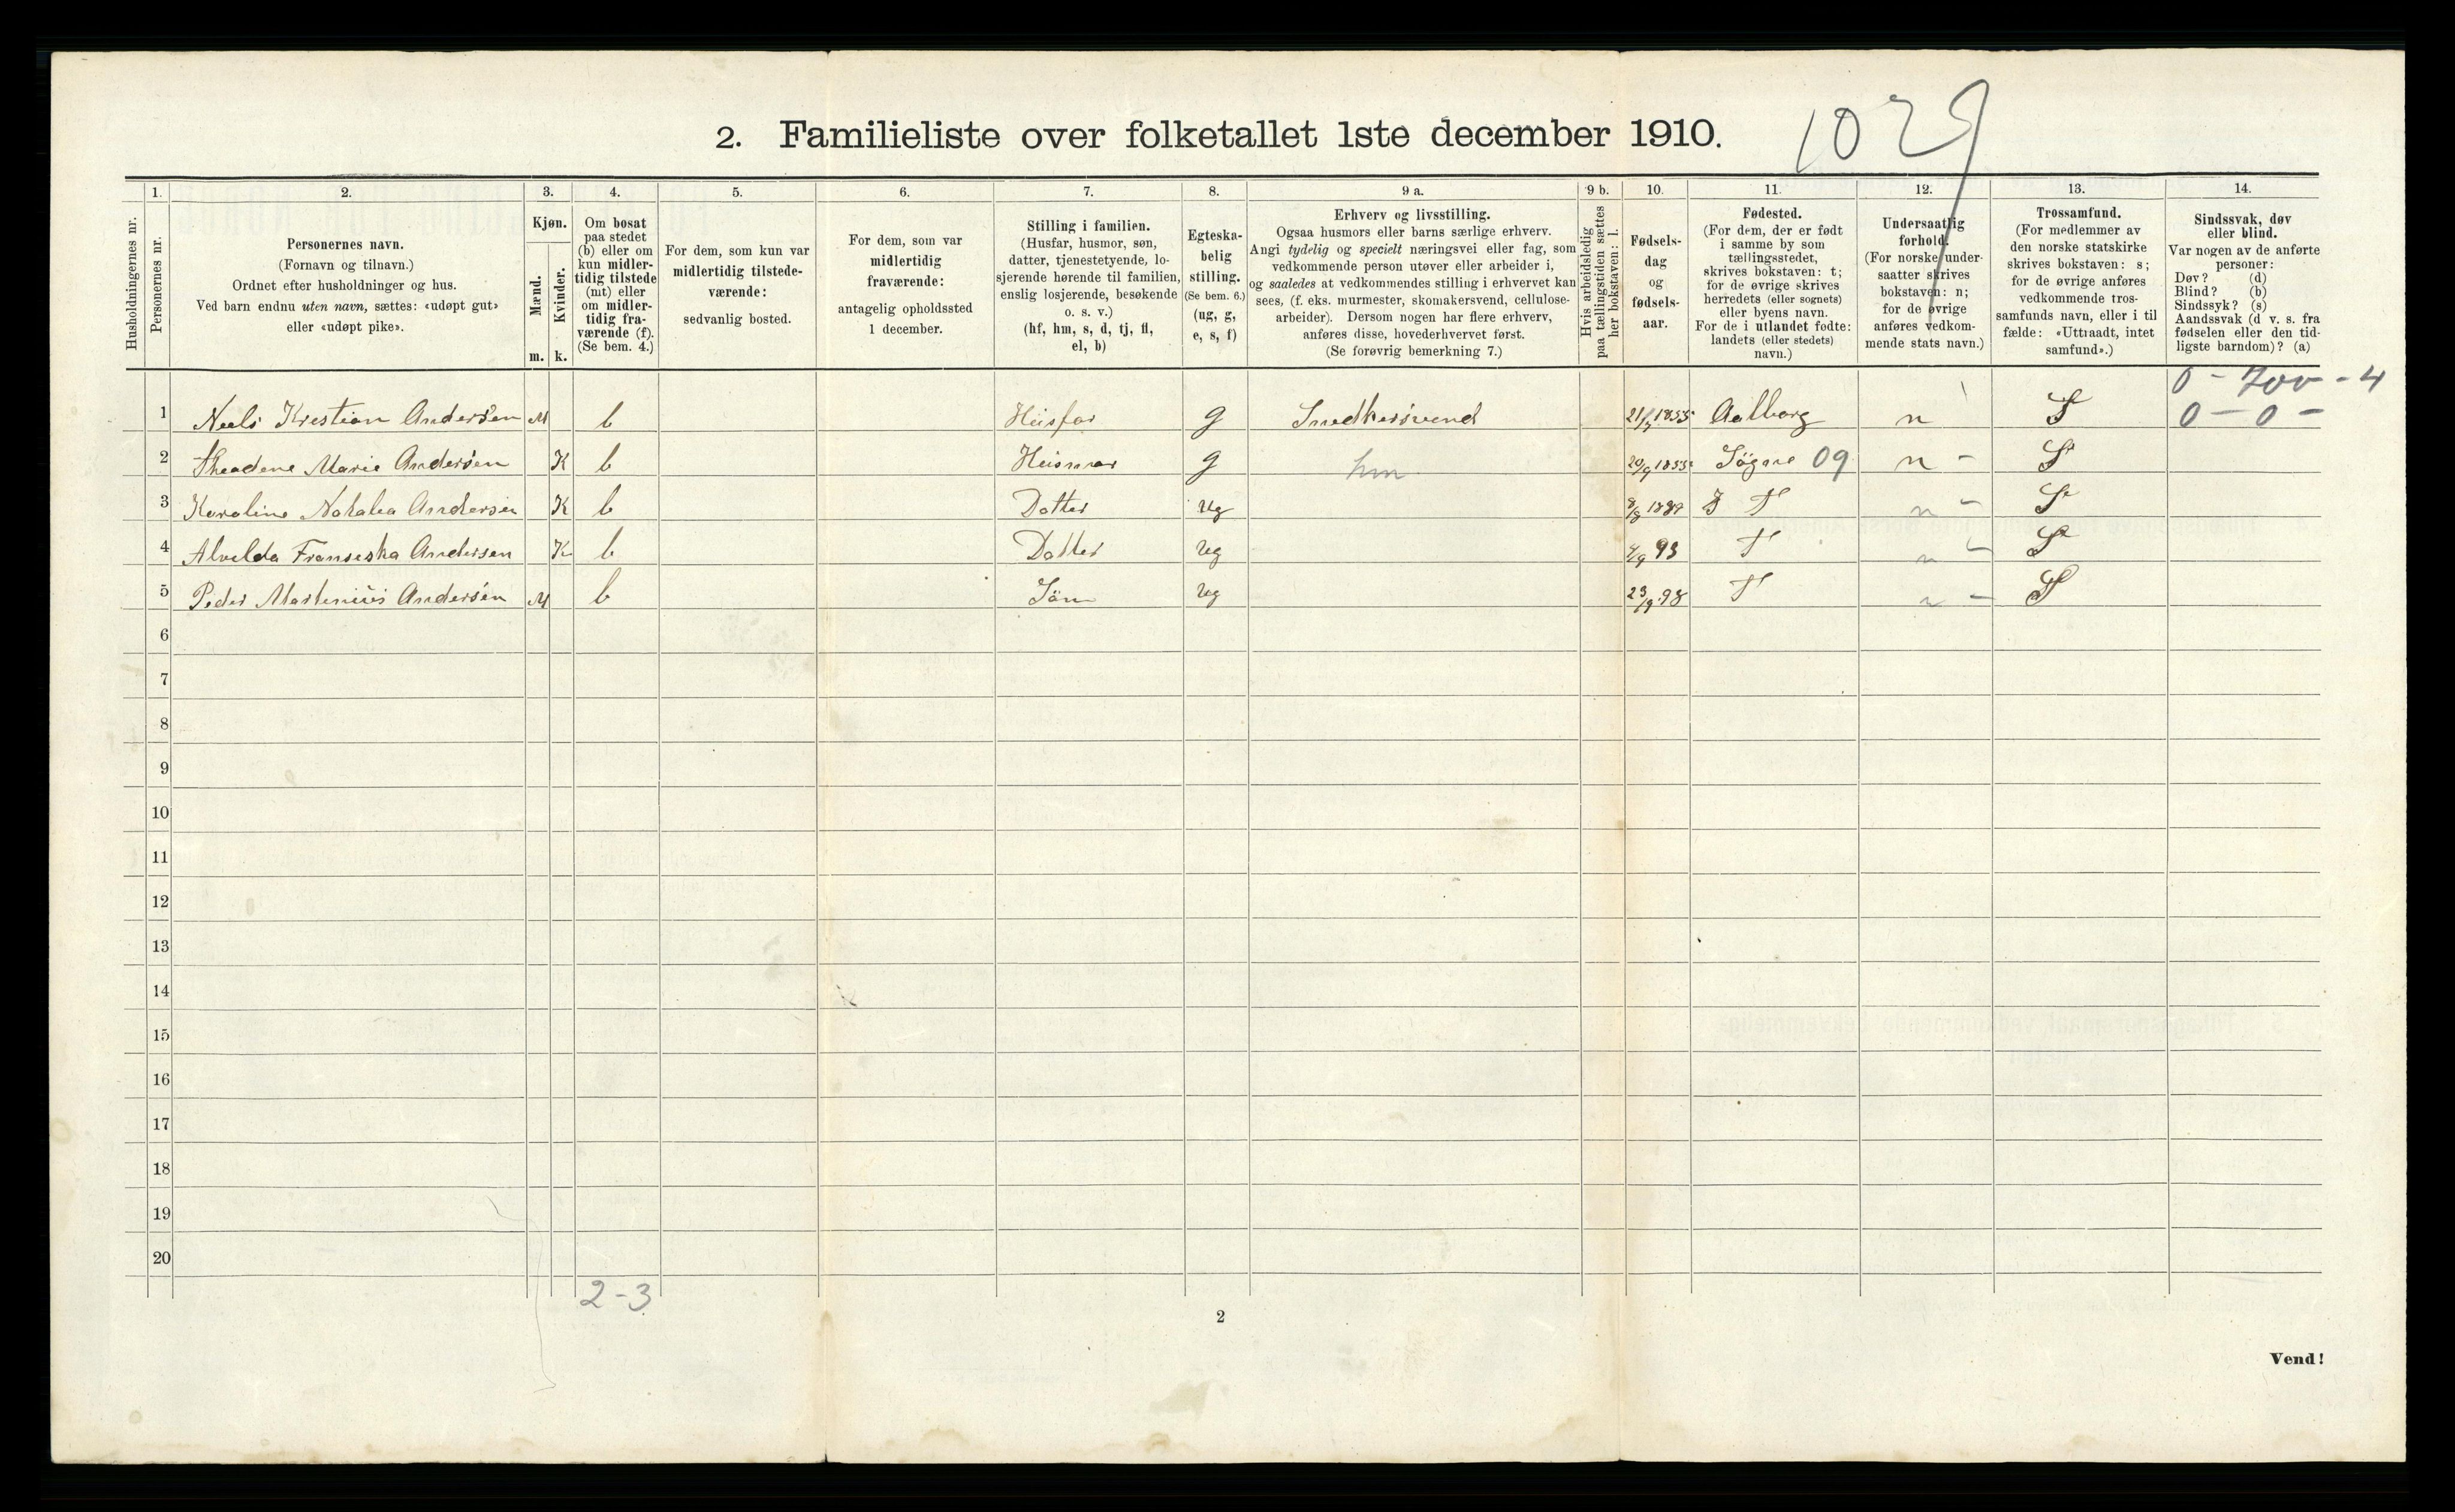 2. Familieliste over folketallet 1ste december 1910.
1029
Husholdningernes nr.
1.
Personernes nr.
2.
Personernes navn.
(Fornavn og tilnavn.)
Ordnet efter husholdninger og hus.
Ved barn endnu uten navn, sættes: «udøpt gut»
eller «udøpt pike».
3.
Kjøn.
Mænd.
Kvinder.
m. k.
4.
Om bosat
paa stedet
(b) eller om
kun midler-
tidig tilstede
(mt) eller
om midler-
tidig fra-
værende (f).
(Se bem. 4.)
5.
For dem, som kun var
midlertidig tilstede-
værende:
sedvanlig bosted.
6.
For dem, som var
midlertidig
fraværende:
antagelig opholdssted
1 december.
7.
Stilling i familien.
(Husfar, husmor, søn,
datter, tjenestetyende, lo-
sjerende hørende til familien,
enslig losjerende, besøkende
o. s. v.)
(hf, hm, s, d, tj, fl,
el, b)
8.
Egteska-
belig
stilling.
(Se bem. 6.)
(ug, g,
e, s, f)
9 a.
Erhverv og livsstilling.
Ogsaa husmors eller barns særlige erhverv.
Angi tydelig og specielt næringsvei eller fag, som
vedkommende person utøver eller arbeider i,
og saaledes at vedkommendes stilling i erhvervet kan
sees, (f. eks. murmester, skomakersvend, cellulose-
arbeider). Dersom nogen har flere erhverv,
anføres disse, hovederhvervet først.
(Se forøvrig bemerkning 7.)
9 b.
Hvis arbeidsledig
paa tællingstiden sættes
her bokstaven: l.
10.
Fødsels-
dag
og
fødsels-
aar.
11.
Fødested.
(For dem, der er født
i samme by som
tællingsstedet,
skrives bokstaven: t;
for de øvrige skrives
herredets (eller sognets)
eller byens navn.
For de i utlandet fødte:
landets (eller stedets)
navn.)
12.
Undersaatlig
forhold.
(For norske under-
saatter skrives
bokstaven: n;
for de øvrige
anføres vedkom-
mende stats navn.)
13.
Trossamfund.
(For medlemmer av
den norske statskirke
skrives bokstaven: s;
for de øvrige anføres
vedkommende tros-
samfunds navn, eller i til
fælde: «Uttraadt, intet
samfund».)
14.
Sindssvak, døv
eller blind.
Var nogen av de anførte
personer:
Døv? (d)
Blind? (b)
Sindssyk? (s)
Aandssvak (d v. s. fra
fødselen eller den tid-
ligste barndom)? (a)
0 - 700 - 4
1 Neels Kristian Andersen M b Husfar g Snedkersvend 1855 Aalborg n S 0 - 0 -
2 Theodene Marie Andersen K b Husmor g hm 20/9 1855 Søgne 09 n - S
3 Karoline Natalia Andersen K b Datter ug T n - S
4 Alvilda Franseska Andersen K b Datter ug 4/9 93 T n - S
5 Peder Martenius Andersen M b Sönn ug 23/9 98 T n - S
6
7
8
9
10
11
12
13
14
15
16
17
18
19
20
2-3
2
Vend!